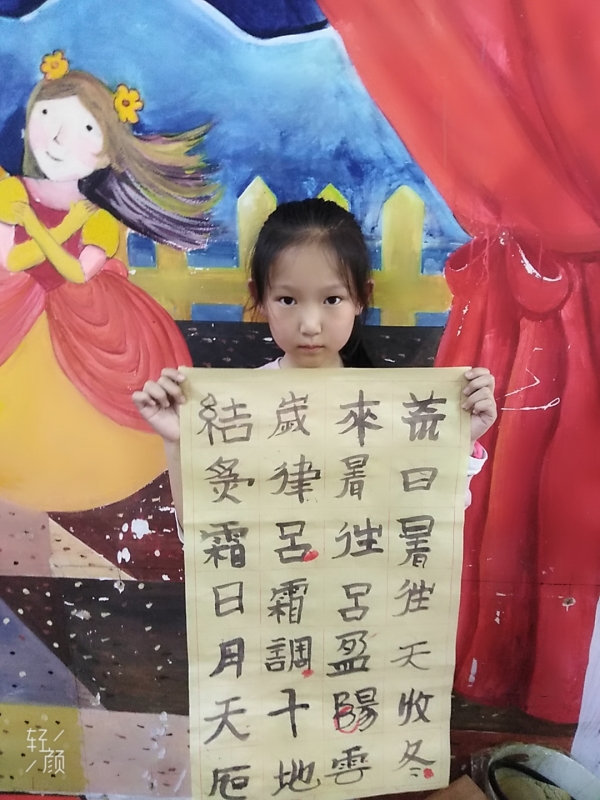 荒日暑往天收冬
來暑往呂盈陽雲
歲律呂霜調十地
結霜日月天
轻颜